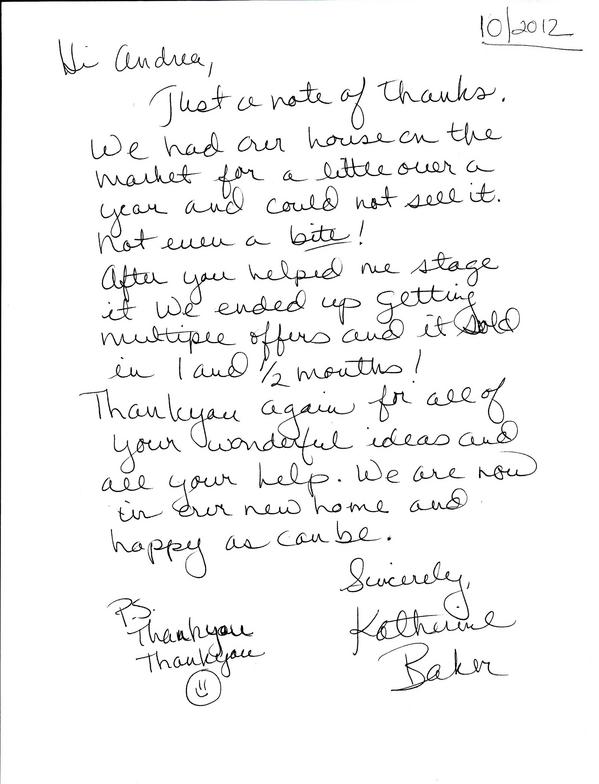 10/2012
Hi Andrea,
Just a note of thanks.
We had our house on the
market for a little over a
year and could not sell it.
Not even a bite!
After you helped me stage
it we ended up getting
multiple offers and it sold
in 1 and 1/2 months!
Thankyou again for all of
your wonderful ideas and
all your help. We are now
in our new home and
happy as can be.
Sincerely,
Katherine
Baker
P.S.
Thankyou
Thankyou